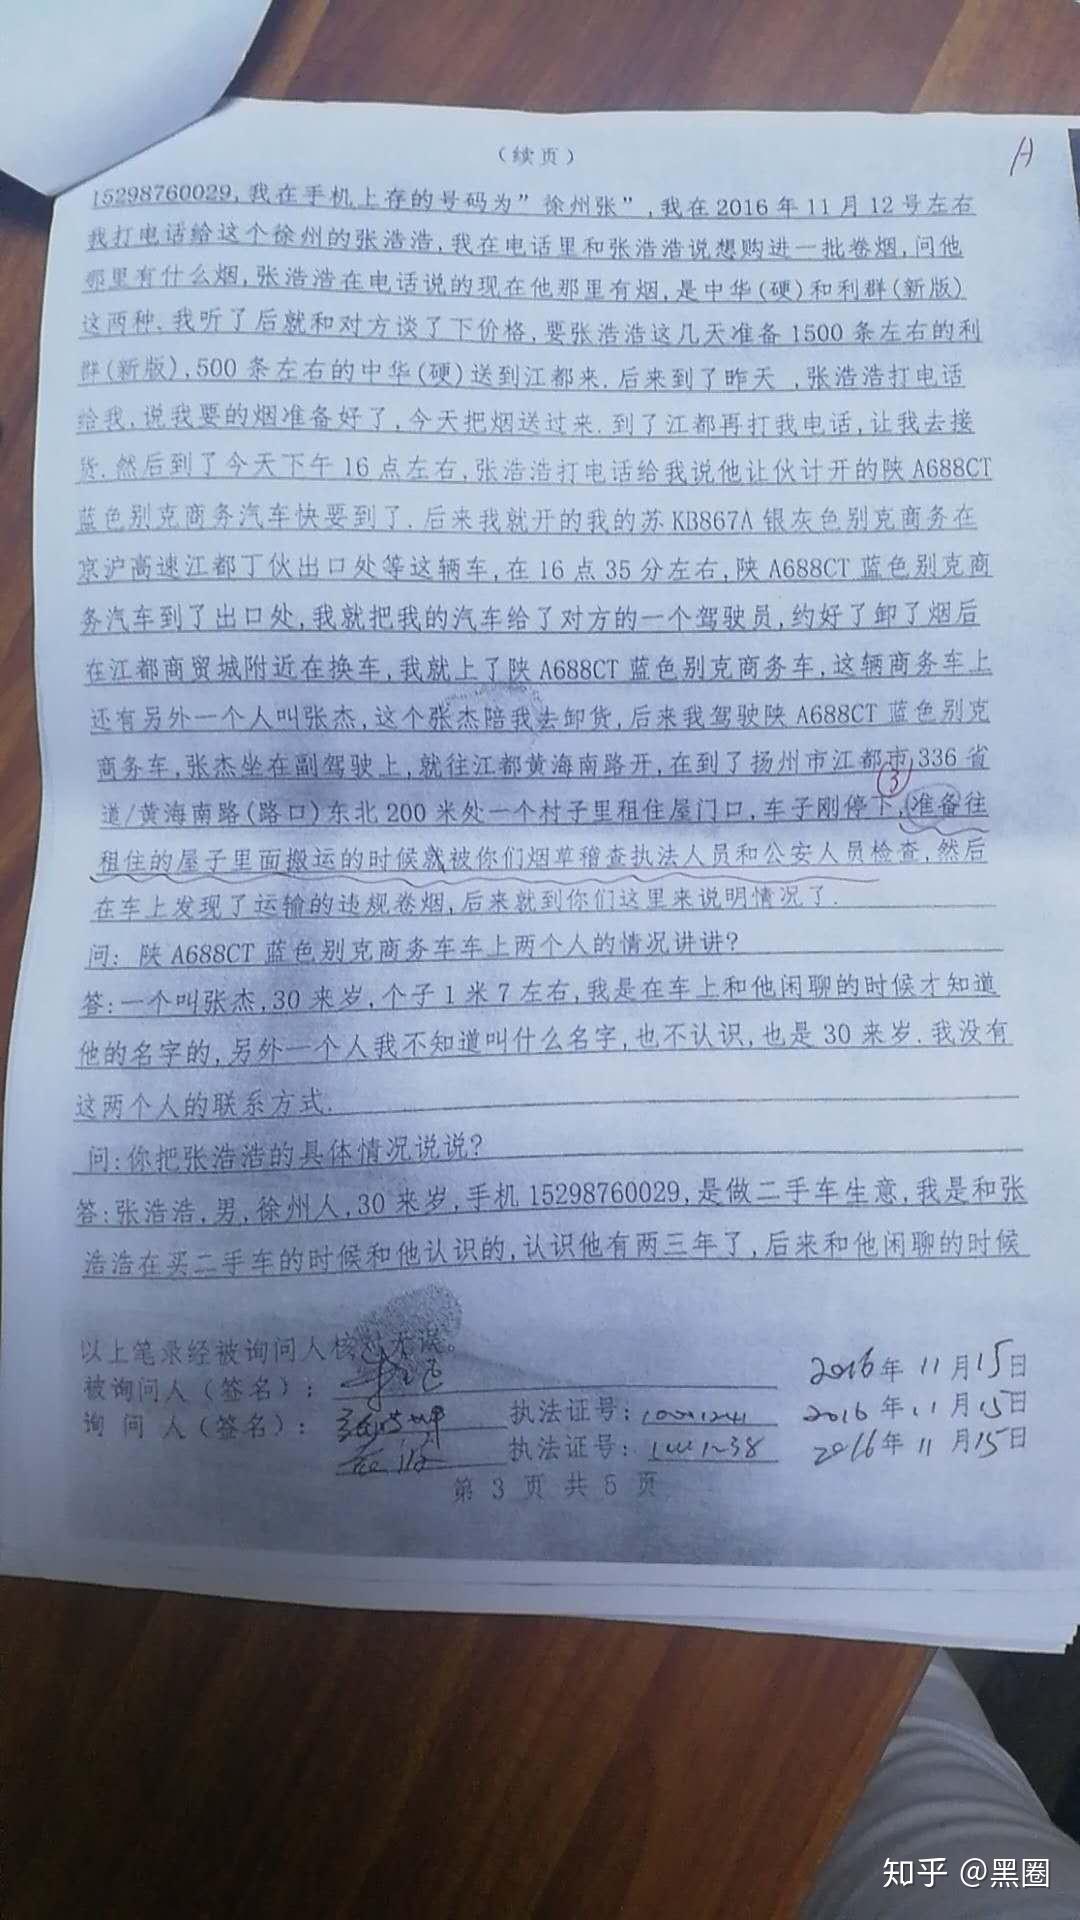 (续页)
15298760029,我在手机上存的号码为"徐州张",我在2016年11月12号左右
我打电话给这个徐州的张浩浩,我在电话里和张浩浩说想购进一批卷烟,问他
那里有什么烟,张浩浩在电话说的现在他那里有烟,是中华(硬)和利群(新版)
这两种.我听了后就和对方谈了下价格,要张浩浩这几天准备1500条左右的利
群(新版),500条左右的中华(硬)送到江都来.后来到了昨天 ,张浩浩打电话
给我,说我要的烟准备好了,今天把烟送过来.到了江都再打我电话,让我去接
货.然后到了今天下午16点左右,张浩浩打电话给我说他让伙计开的陕A688CT
蓝色别克商务汽车快要到了.后来我就开的我的苏KB867A银灰色别克商务在
京沪高速江都丁伙出口处等这辆车,在16点35分左右,陕A688CT蓝色别克商
务汽车到了出口处,我就把我的汽车给了对方的一个驾驶员,约好了卸了烟后
在江都商贸城附近在换车,我就上了陕A688CT蓝色别克商务车,这辆商务车上
还有另外一个人叫张杰,这个张杰陪我去卸货,后来我驾驶陕A688CT蓝色别克
商务车,张杰坐在副驾驶上,就往江都黄海南路开,在到了扬州市江都市,336省
③
道/黄海南路(路口)东北200米处一个村子里租住屋门口,车子刚停下,准备往
租住的屋子里面搬运的时候就被你们烟草稽查执法人员和公安人员检查,然后
在车上发现了运输的违规卷烟,后来就到你们这里来说明情况了.
问: 陕A688CT蓝色别克商务车车上两个人的情况讲讲?
答:一个叫张杰,30来岁,个子1米7左右,我是在车上和他闲聊的时候才知道
他的名字的,另外一个人我不知道叫什么名字,也不认识,也是30来岁.我没有
这两个人的联系方式.
问:你把张浩浩的具体情况说说?
答:张浩浩,男,徐州人,30来岁,手机15298760029,是做二手车生意,我是和张
浩浩在买二手车的时候和他认识的,认识他有两三年了,后来和他闲聊的时候
以上笔录经被询问人核对无误。
被询问人(签名): 2016年11月15日
询 问 人(签名): 执法证号: 2016年11月15日
执法证号: 2016年11月15日
第 3 页 共 5 页
知乎 @黑圈